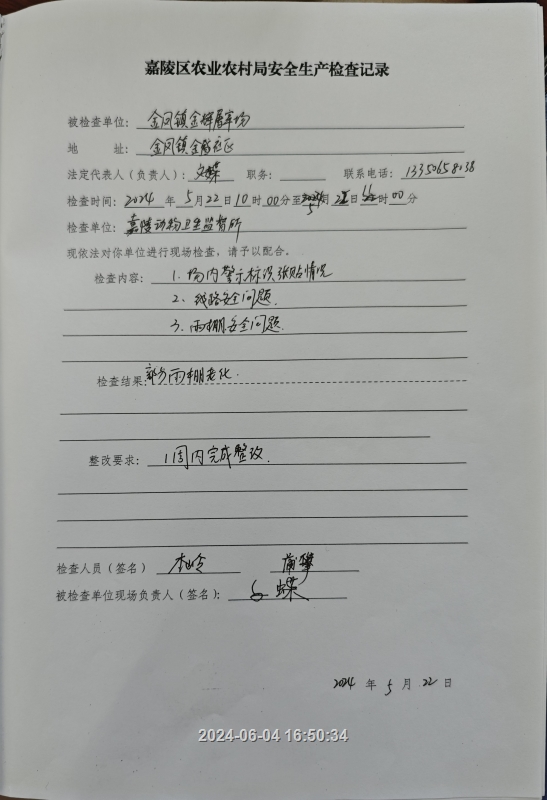 嘉陵区农业农村局安全生产检查记录
被检查单位: 金凤镇金辉屠宰场
地 址: 金凤镇金 社区
法定代表人(负责人): 文蝶 职务: 联系电话: 13350658038
检查时间: 2024 年 5 月 22 日 10 时 00 分至 5 月 22 日 11 时 00 分
检查单位: 嘉陵动物卫生监督所
现依法对你单位进行现场检查,请予以配合。
检查内容: 1. 场内警示标识张贴情况
2、线路安全问题.
3. 雨棚安全问题.
检查结果: 部分雨棚老化.
整改要求: 1周内完成整改.
检查人员(签名)
被检查单位现场负责人(签名): 文蝶
2024 年 5 月 22 日
2024-06-04 16:50:34